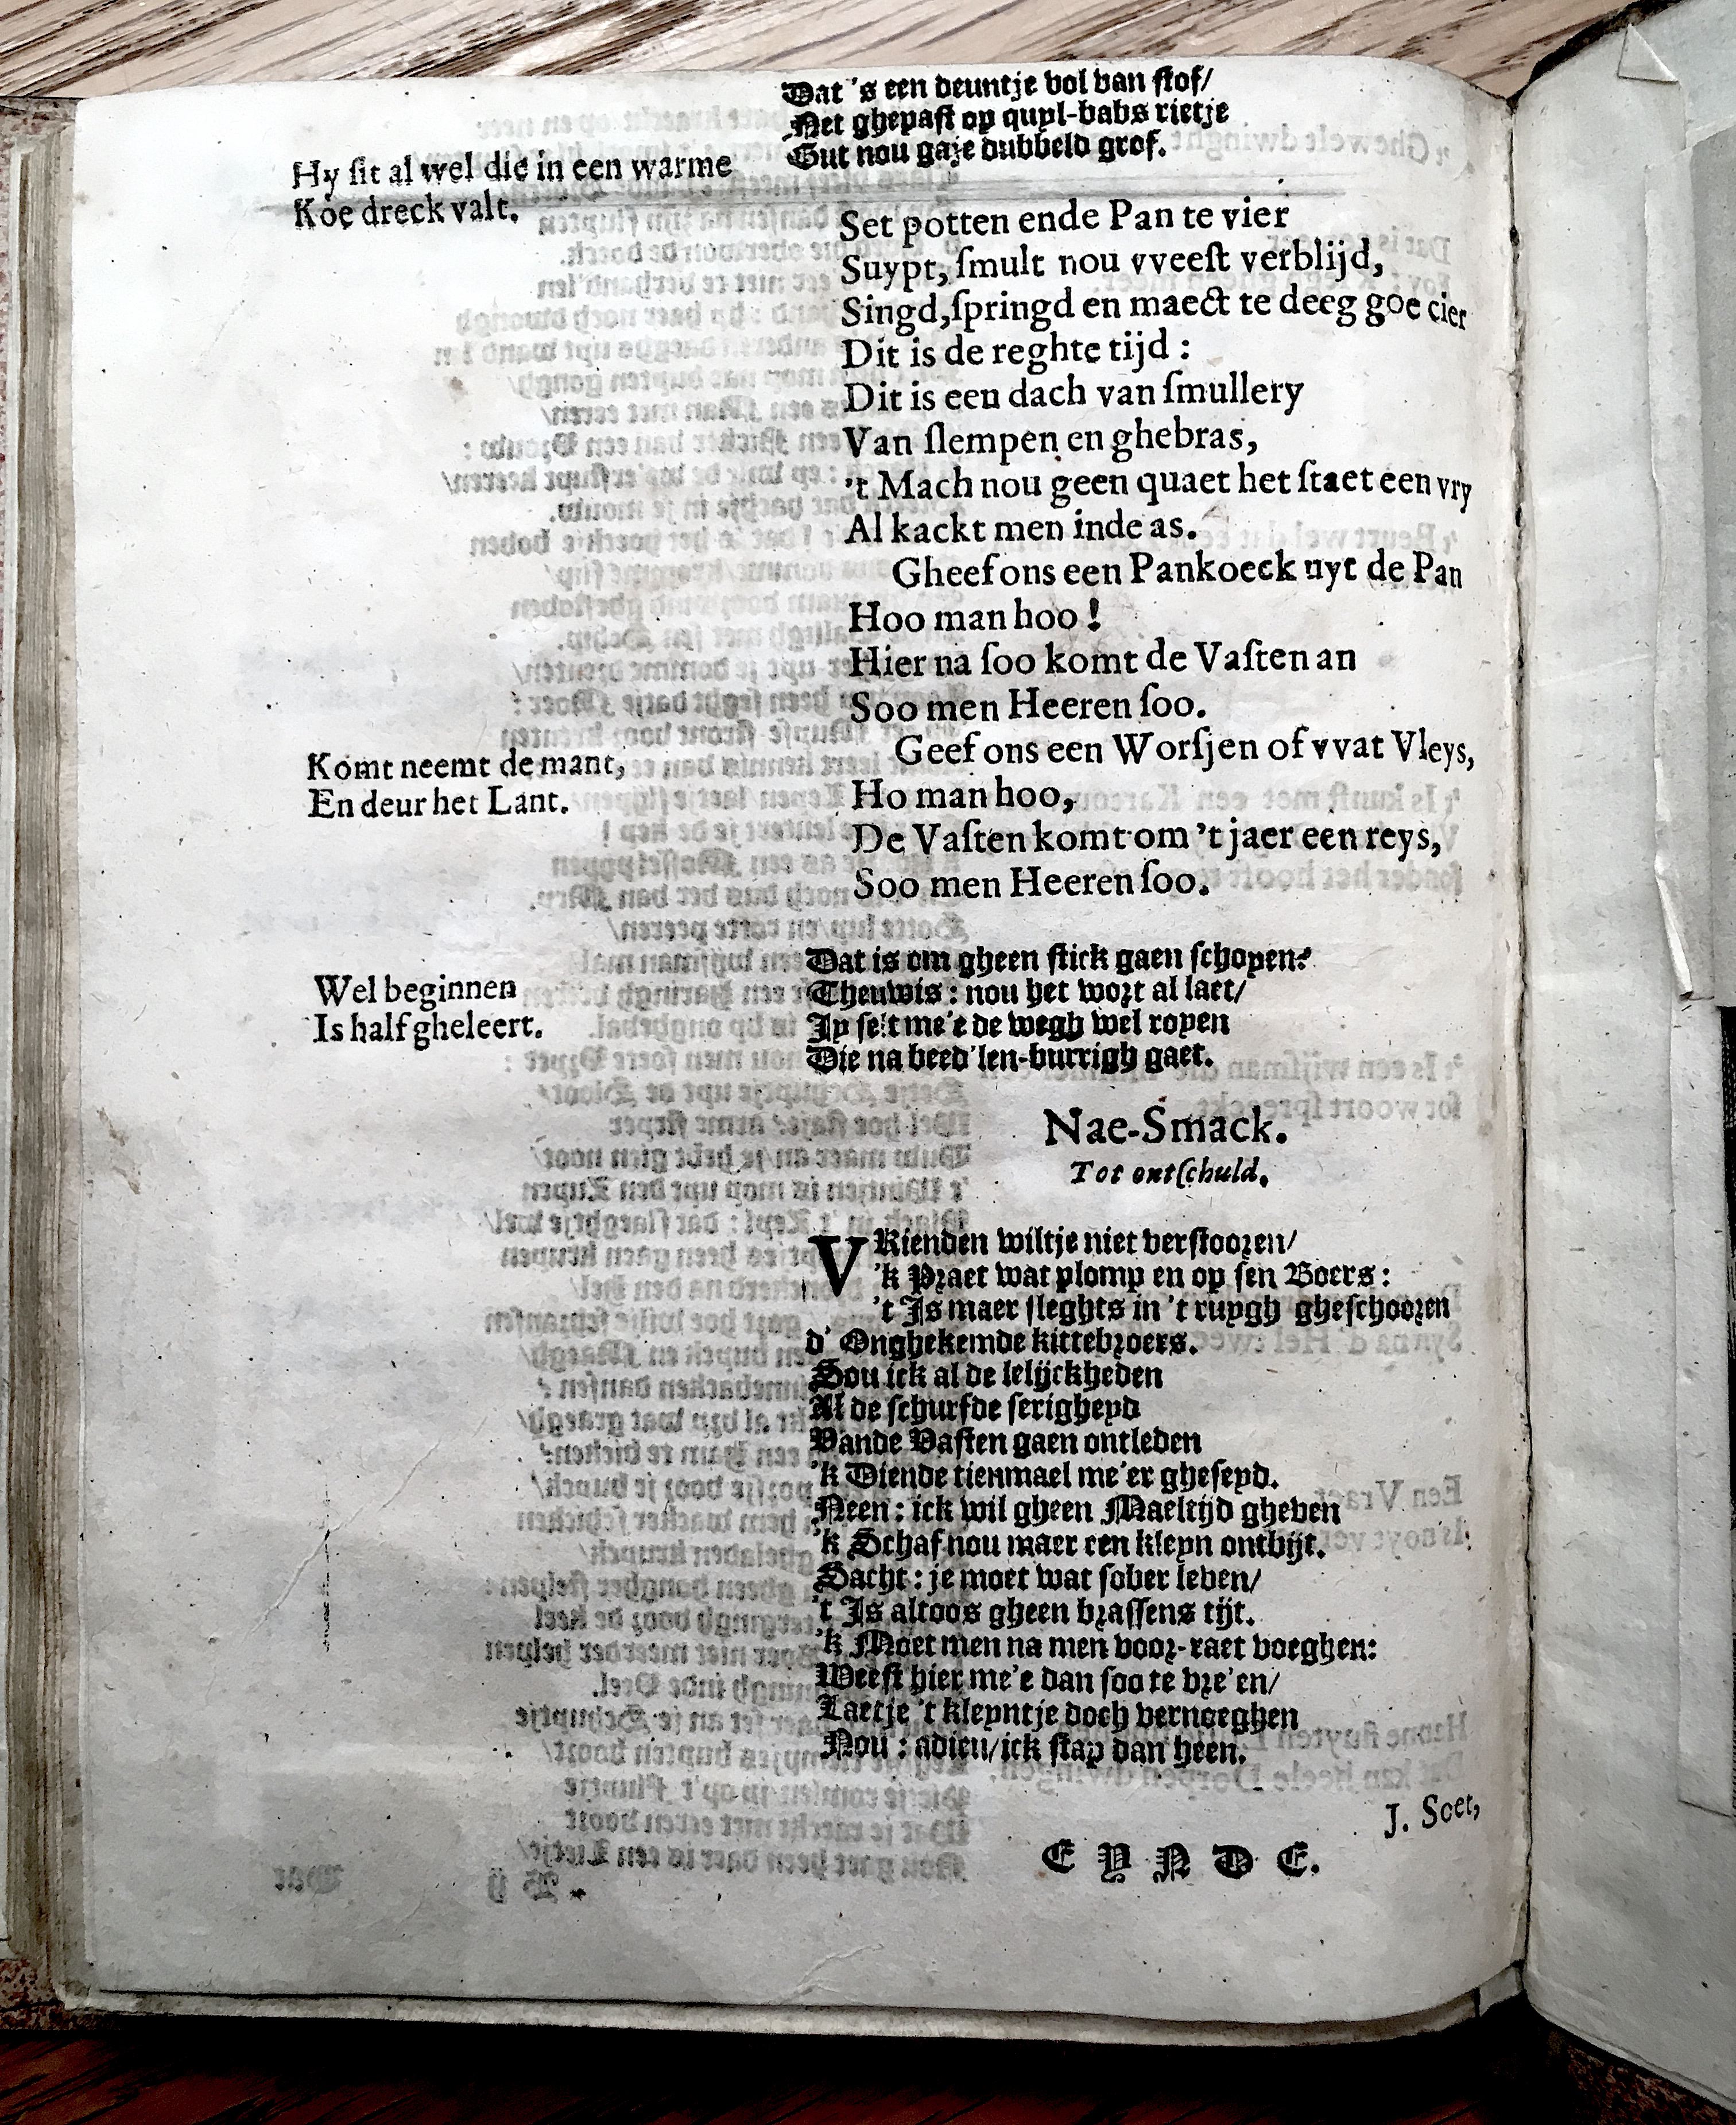 Dat 's een deuntje vol van stof/
Net ghepast op quyl-babs rietje
Gut nou gaje dubbeld grof.
Hy ſit al wel die in een warme
Koe dreck valt.
Set potten ende Pan te vier
Suypt, ſmult nou vveeſt verblijd,
Singd, ſpringd en maect te deeg goe cier
Dit is de reghte tijd :
Dit is een dach van ſmullery
Van ſlempen en ghebras,
't Mach nou geen quaet het ſtaet een vry
Al kackt men inde as.
Gheef ons een Pankoeck uyt de Pan
Hoo man hoo !
Hier na ſoo komt de Vaſten an
Soo men Heeren ſoo.
Geef ons een Worſjen of vvat Vleys,
Komt neemt de mant,
En deur het Lant.
Ho man hoo,
De Vaſten komt om 't jaer een reys,
Soo men Heeren ſoo.
Dat is om gheen ſtick gaen ſchopen?
Wel beginnen
Is half gheleert.
Theuwis : nou het wort al laet/
Jy ſelt me'e de wegh wel ropen
Die na beed'len-burrigh gaet.
Nae-Smack.
Tot ontſchuld.
VRienden wiltje niet verſtooren/
'k Praet wat plomp en op ſen Boers :
't Is maer ſleghts in 't ruygh gheſchooren
d' Onghekemde kittebroers.
Sou ick al de lelijckheden
Al de ſchurfde ſerigheyd
Vande Vaſten gaen ontleden
'k Diende tienmael me'er gheſeyd.
Neen : ick wil gheen Maeltijd gheven
'k Schaf nou maer een kleyn ontbijt.
Sacht : je moet wat ſober leven/
't Is altoos gheen braſſens tijt.
'k Moet men na men voor-raet voeghen:
Weeſt hier me'e dan ſoo te vre'en/
Laetje 't kleyntje doch vernoeghen
Nou : adieu/ ick ſtap dan heen.
J. Soet,
EYNDE.